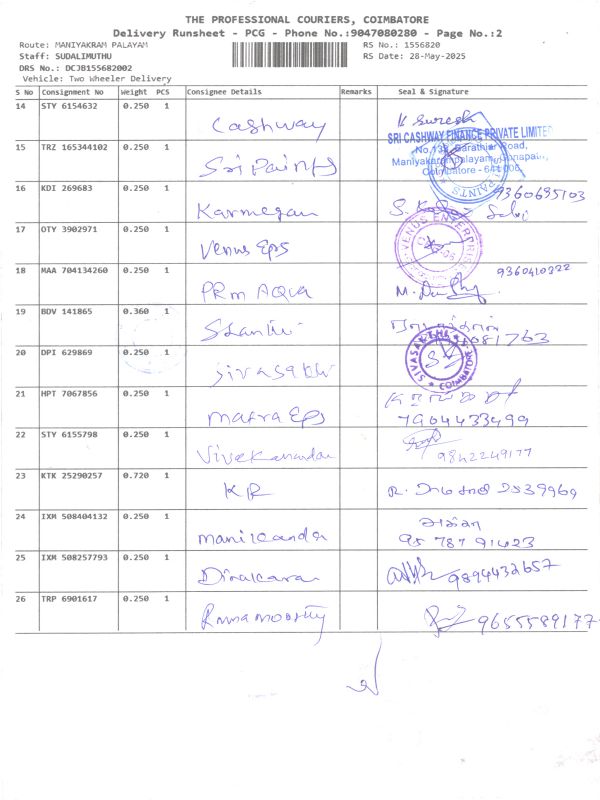 THE PROFESSIONAL COURIERS, COIMBATORE
Delivery Runsheet - PCG - Phone No.:9047080280 - Page No.:2
Route: MANIYAKRAM PALAYAM
RS No.: 1556820
Staff: SUDALIMUTHU
RS Date: 28-May-2025
DRS No.: DCJB155682002
Vehicle: Two Wheeler Delivery
S No Consignment No Weight PCS Consignee Details Remarks Seal & Signature
14 STY 6154632 0.250 1 Cashway K Suresh
SRI CASHWAY FINANCE PRIVATE LIMITED
15 TRZ 165344102 0.250 1 Sri Paints
Coimbatore - 641 006
16 KDI 269683 0.250 1 Karmegan 9360695103
17 OTY 3902971 0.250 1 Venus Eps VENUS ENTERPRISES
18 MAA 704134260 0.250 1 PRM AQUA 9360410222
19 BDV 141865 0.360 1 Shanthi
20 DPI 629869 0.250 1 Sivasakthi SIVASAKTHI COIMBATORE
21 HPT 7067856 0.250 1 Matra Eps 7904433499
22 STY 6155798 0.250 1 Vivekanandan 9842249177
23 KTK 25290257 0.720 1 KR 2539969
24 IXM 508404132 0.250 1 Manikanda
25 IXM 508257793 0.250 1 Dinakaran 9894432657
26 TRP 6901617 0.250 1 Ramamoorthy 9655589177